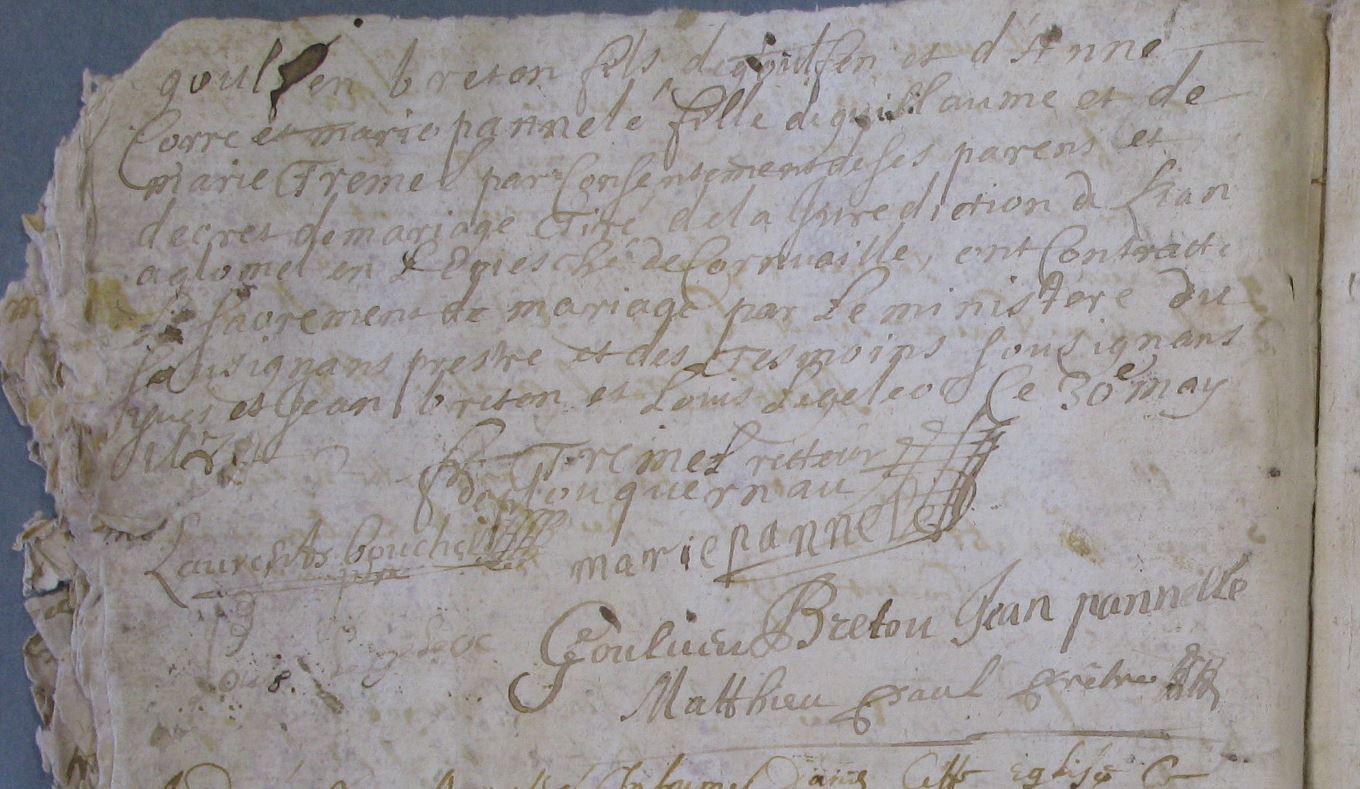 goulfen breton fils de goulfen et d'Anne
Corre et marie pannele fille de guillaume et de
marie Tremel par Consentement de ses parens et
decret de mariage Tiré de la Jurediction de
a glomel en L'Evesché de Cornuaille, ont Contracté
Le sacrement de mariage par Le ministere du
sousignans prestre et des Tesmoins sousignans
yves et jean breton et Louis Ce 30e may
Tremel recteur
de plouguerneau
Laurens marie pannele
Goulvien Breton Jean pannelle
Matthieu paul prêtre
dans Cette Eglise